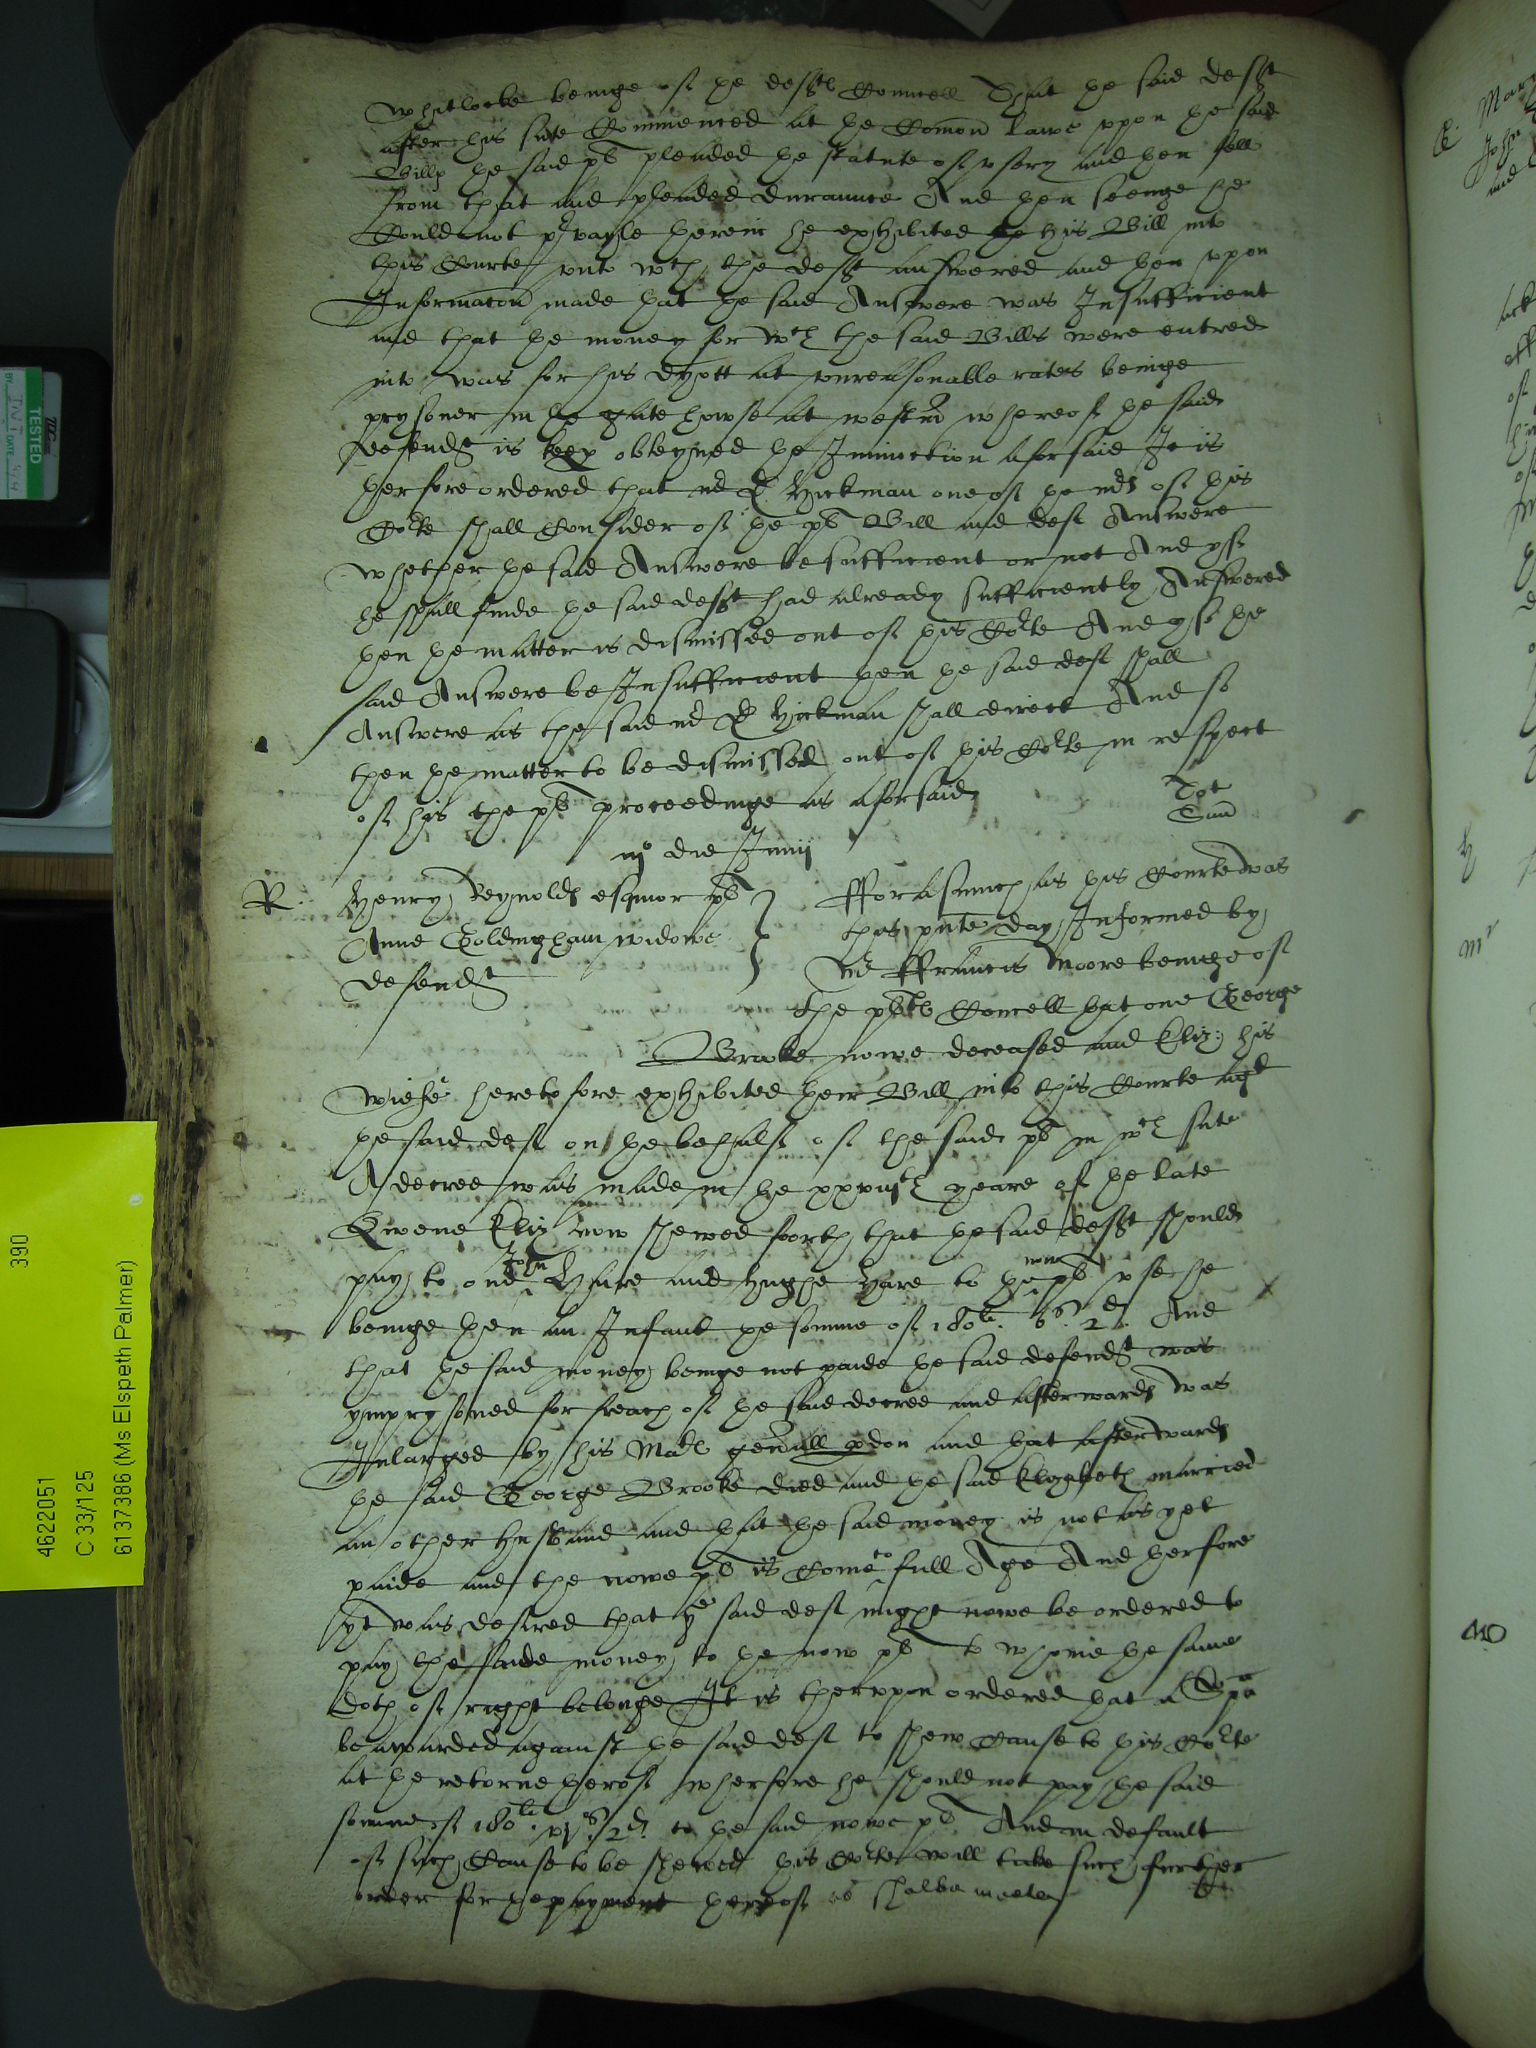 Whitlocke beinge of þe defts Councell That þe said deft
after his sute Commenced at þe Comon Lawe uppon þe said
Bills þe said pl pleaded þe statute of usery and þen fell
from that and pleaded duraunce And þen seeinge he
Could not prvayle þerein he exhibited his Bill into
this Courte unto wch the deft answered and þen uppon
Informacon made þat þe said Answere was Insufficient
and that þe money for wch the said Bills were entred
into was for his dyott at unreasonable rates beinge
prysoner in þe gatehowse at westmr whereof þe said
defendt is keepr obteyned þe Iniunction aforsaid It is
þerfore ordered that mr D Hickman one of þe mrs of this
Corte shall Consider of þe pl Bill and deft Answere
whether þe said Answere be sufficient or not And yf
he shall finde þe said deft had already sufficiently Answered
þen þe matter is dismissed out of þis Corte And yf þe
said Answere be Insufficient þen þe said deft shall
Answere as the said mr D Hickman shall direct And so
then þe matter to be dismissed out of þis Corte in respect
of his the pl proceedinge as aforsaid
Tot
iijo die Junij
R. Henry Reynolds esquior pl
Anne Goldingham widowe
defendt
Fforasmuch as þis Courte was
this pnte day Informed by
Mr Ffrancis Moore beinge of
the plts Councell þat one George
Brooke nowe deceased and Eliz: his
wiefe heretofore exhibited þeir Bill into this Courte agt
þe said deft on þe behalf of the said pl in wch sute
A decree was made in þe xxxvijth yeare of þe late
Qwene Eliz now shewed foorth that þe said deft should
pay to one John Hare and Hughe Hare to þe now pl use he
beinge þen an Infant þe somme of 180li. 6s. 2d. And
that þe said money beinge not paide þe said defendt was
ymprysoned for breach of þe said decree and afterwards was
Inlarged by his Mats genrall pdon and þat afterwards
þe said George Brooke died and þe said Elyzabeth married
an other husband and þat þe said money is not as yet
paide and the nowe pl is Come to full Age And þerfore
yt was desired that ye said deft might nowe be ordered to
pay the saide money to þe now pl to whome þe same
doth of right belonge It is therupon ordered þat a Spa
be awarded against þe said deft to shew Cause to þis Corte
at þe retorne þerof wherfore he should not pay þe said
somme of 180li. vjs. 2d. to þe said nowe pl And in default
of such Cause to be shewed þis Corte will take such further
order for þe payment þereof as shalbe meete
4622051
C 33/125
6137386 (Ms Elspeth Palmer)
390
TESTED